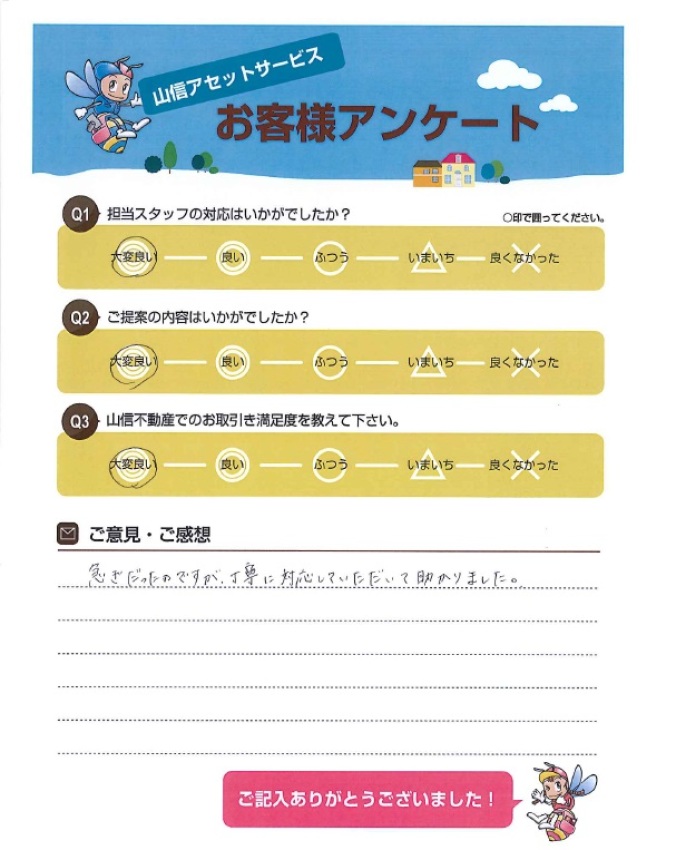 山信アセットサービス
お客様アンケート
Q1 担当スタッフの対応はいかがでしたか？ ○印で囲ってください。
大変良い 良い ふつう いまいち 良くなかった
Q2 ご提案の内容はいかがでしたか？
大変良い 良い ふつう いまいち 良くなかった
Q3 山信不動産でのお取引き満足度を教えて下さい。
大変良い 良い ふつう いまいち 良くなかった
ご意見・ご感想
急ぎだったのですが、丁寧に対応していただいて助かりました。
ご記入ありがとうございました！